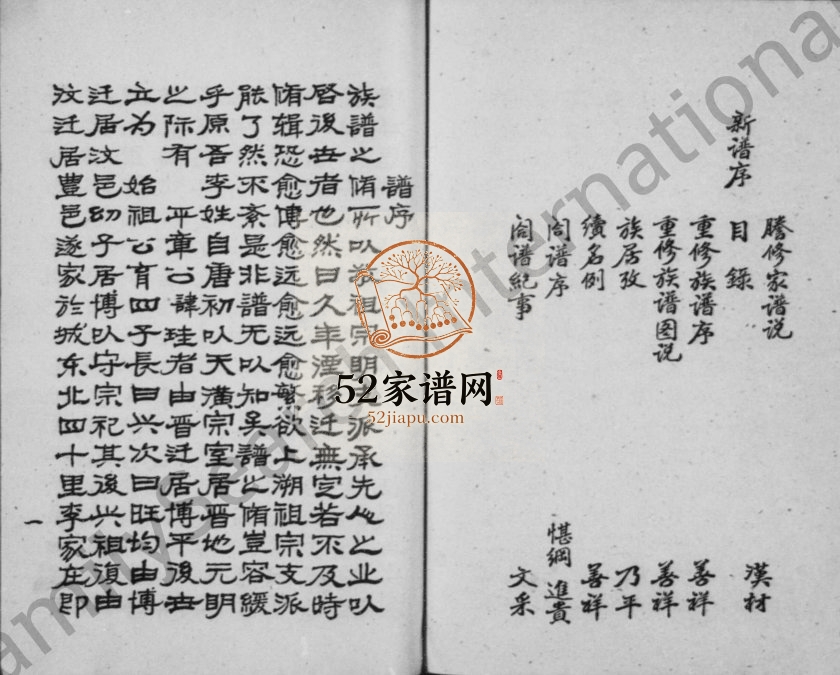 謄修家谱说 漢材
新谱序 目錄
重修族谱序 善祥
重修族谱图说 善祥
族居攷 乃平
續名例 善祥
閤谱序 堪綱 進貴
閤谱紀事 文采
譜序
族譜之脩所以祖宗明派承先人之业以
啓後世者也然日久年湮移迁無定若不及時
脩辑恐愈傳愈远愈远愈繁欲上溯祖宗支派
能了然不紊是非譜无以知矣譜之脩豈容緩
乎原吾李姓自唐初以天潢宗室居晋地元明
之际有 平章公諱珪者由晋迁居博平後世
立为 始祖公育四子長曰兴次曰旺均由博
迁居汶邑幼子居博以守宗祀其後兴祖復由
汶迁居豊邑遂家於城东北四十里李家在即
一
52家谱网
52jiapu.com
FamilySearch International